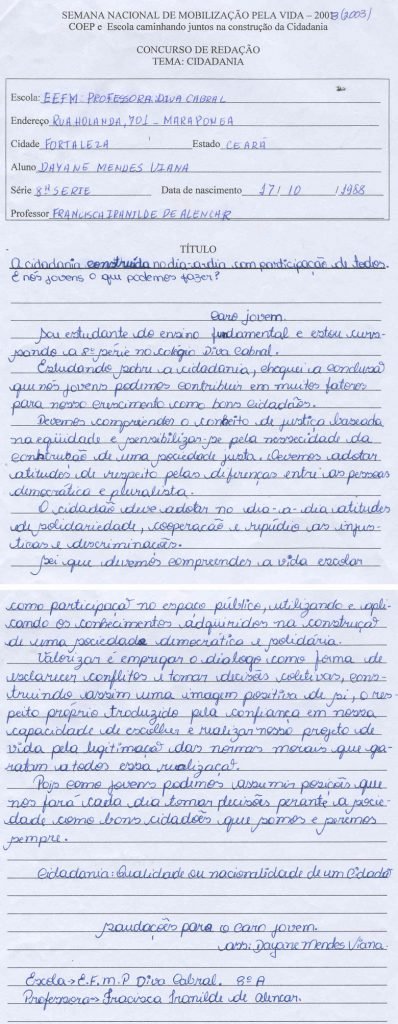 SEMANA NACIONAL DE MOBILIZAÇÃO PELA VIDA – 2003 (2003)
COEP e Escola caminhando juntos na construção da Cidadania
CONCURSO DE REDAÇÃO
TEMA: CIDADANIA
Escola: EEFM: PROFESSORA DIVA CABRAL
Endereço RUA HOLANDA, 701 - MARAPONGA
Cidade FORTALEZA Estado CEARÁ
Aluno DAYANE MENDES VIANA
Série 8ª SERIE Data de nascimento 17/10/1988
Professor FRANCISCA IRANILDE DE ALENCAR
TÍTULO
A cidadania construída no dia-a-dia com participação de todos.
E nós jovens o que podemos fazer?
Caro jovem.
Sou estudante do ensino fundamental e estou curs-
pando a 8ª série no colégio Diva Cabral.
Estudando sobre a cidadania, cheguei a conclusã
que nós jovens podemos contribuir em muitos fatores
para nosso crescimento como bons cidadãos.
Devemos compreender o conceito de justiça baseada
na eqüidade e sensibilizar-se pela nessecidade da
construção de uma sociedade justa. Devemos adotar
atitudes de respeito pelas diferenças entre as pessoas
democrática e pluralista.
O cidadão deve adotar no dia-a-dia atitudes
de solidariedade, cooperação e repúdio as injus-
ticas e descriminações.
Sei que devemos compreender a vida escolar
como participaçã no espaço público, utilizando e apli-
cando os conhecimentos adquiridos na construçã
de uma sociedade democrática e solidária.
Valorizar é empregar o dialogo como forma de
esclarecer conflitos e tomar decisões coletivas, cons-
truindo assim uma imagem positiva de si, o res-
peito próprio traduzido pela confiança em nossa
capacidade de escolher e realizar nosso projeto de
vida pela legitimaçã das normas morais que ga-
ratam a todos essa realizaçã.
Pois como jovens podemos assumir posições que
nos fará cada dia tomar decisões perante a socie-
dade como bons cidadões que somos e seremos
sempre.
Cidadania: Qualidade ou nacionalidade de um Cidadã
saudações para o caro jovem.
ass: Dayane Mendes Viana.
Escola → E.F.M.P Diva Cabral. 8ª A
Professora → Fracisca Iranilde de alencar.